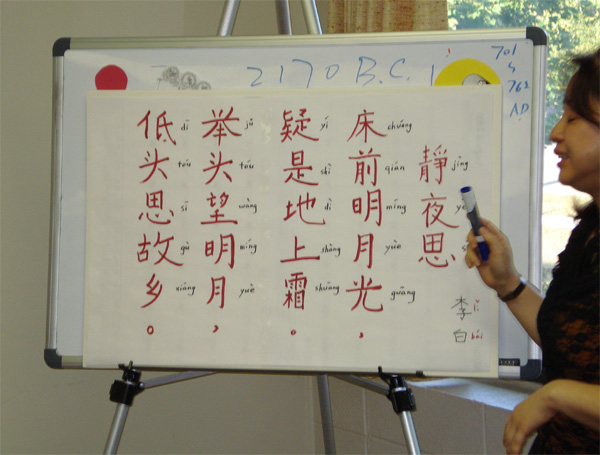 2170 B.C.
701
762
AD
靜夜思
jìng
李白
lǐ bái
床前明月光，
chuáng qián míng yuè guāng
疑是地上霜。
yí shì dì shàng shuāng
举头望明月，
jǔ tóu wàng míng yuè
低头思故乡。
dī tóu sī gù xiāng